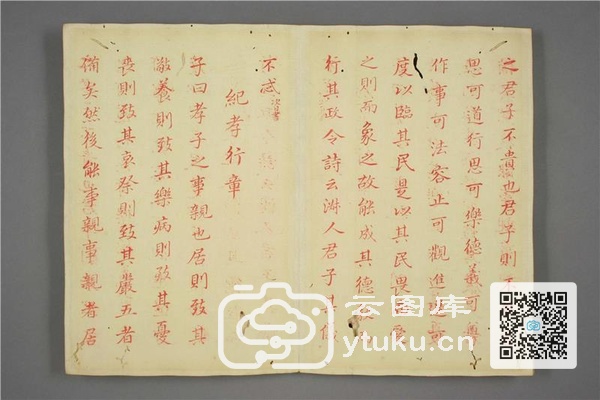 之君子不貴也君子則不
思可道行思可樂德義可尊
作事可法容止可觀進
度以臨其民是以其民畏
之則而象之故能成其德
行其政令詩云淑人君子其儀
不忒
紀孝行章
子曰孝子之事親也居則致其
敬養則致其樂病則致其憂
喪則致其哀祭則致其嚴五者
備矣然後能事親事親者居
云图库
ytuku.cn